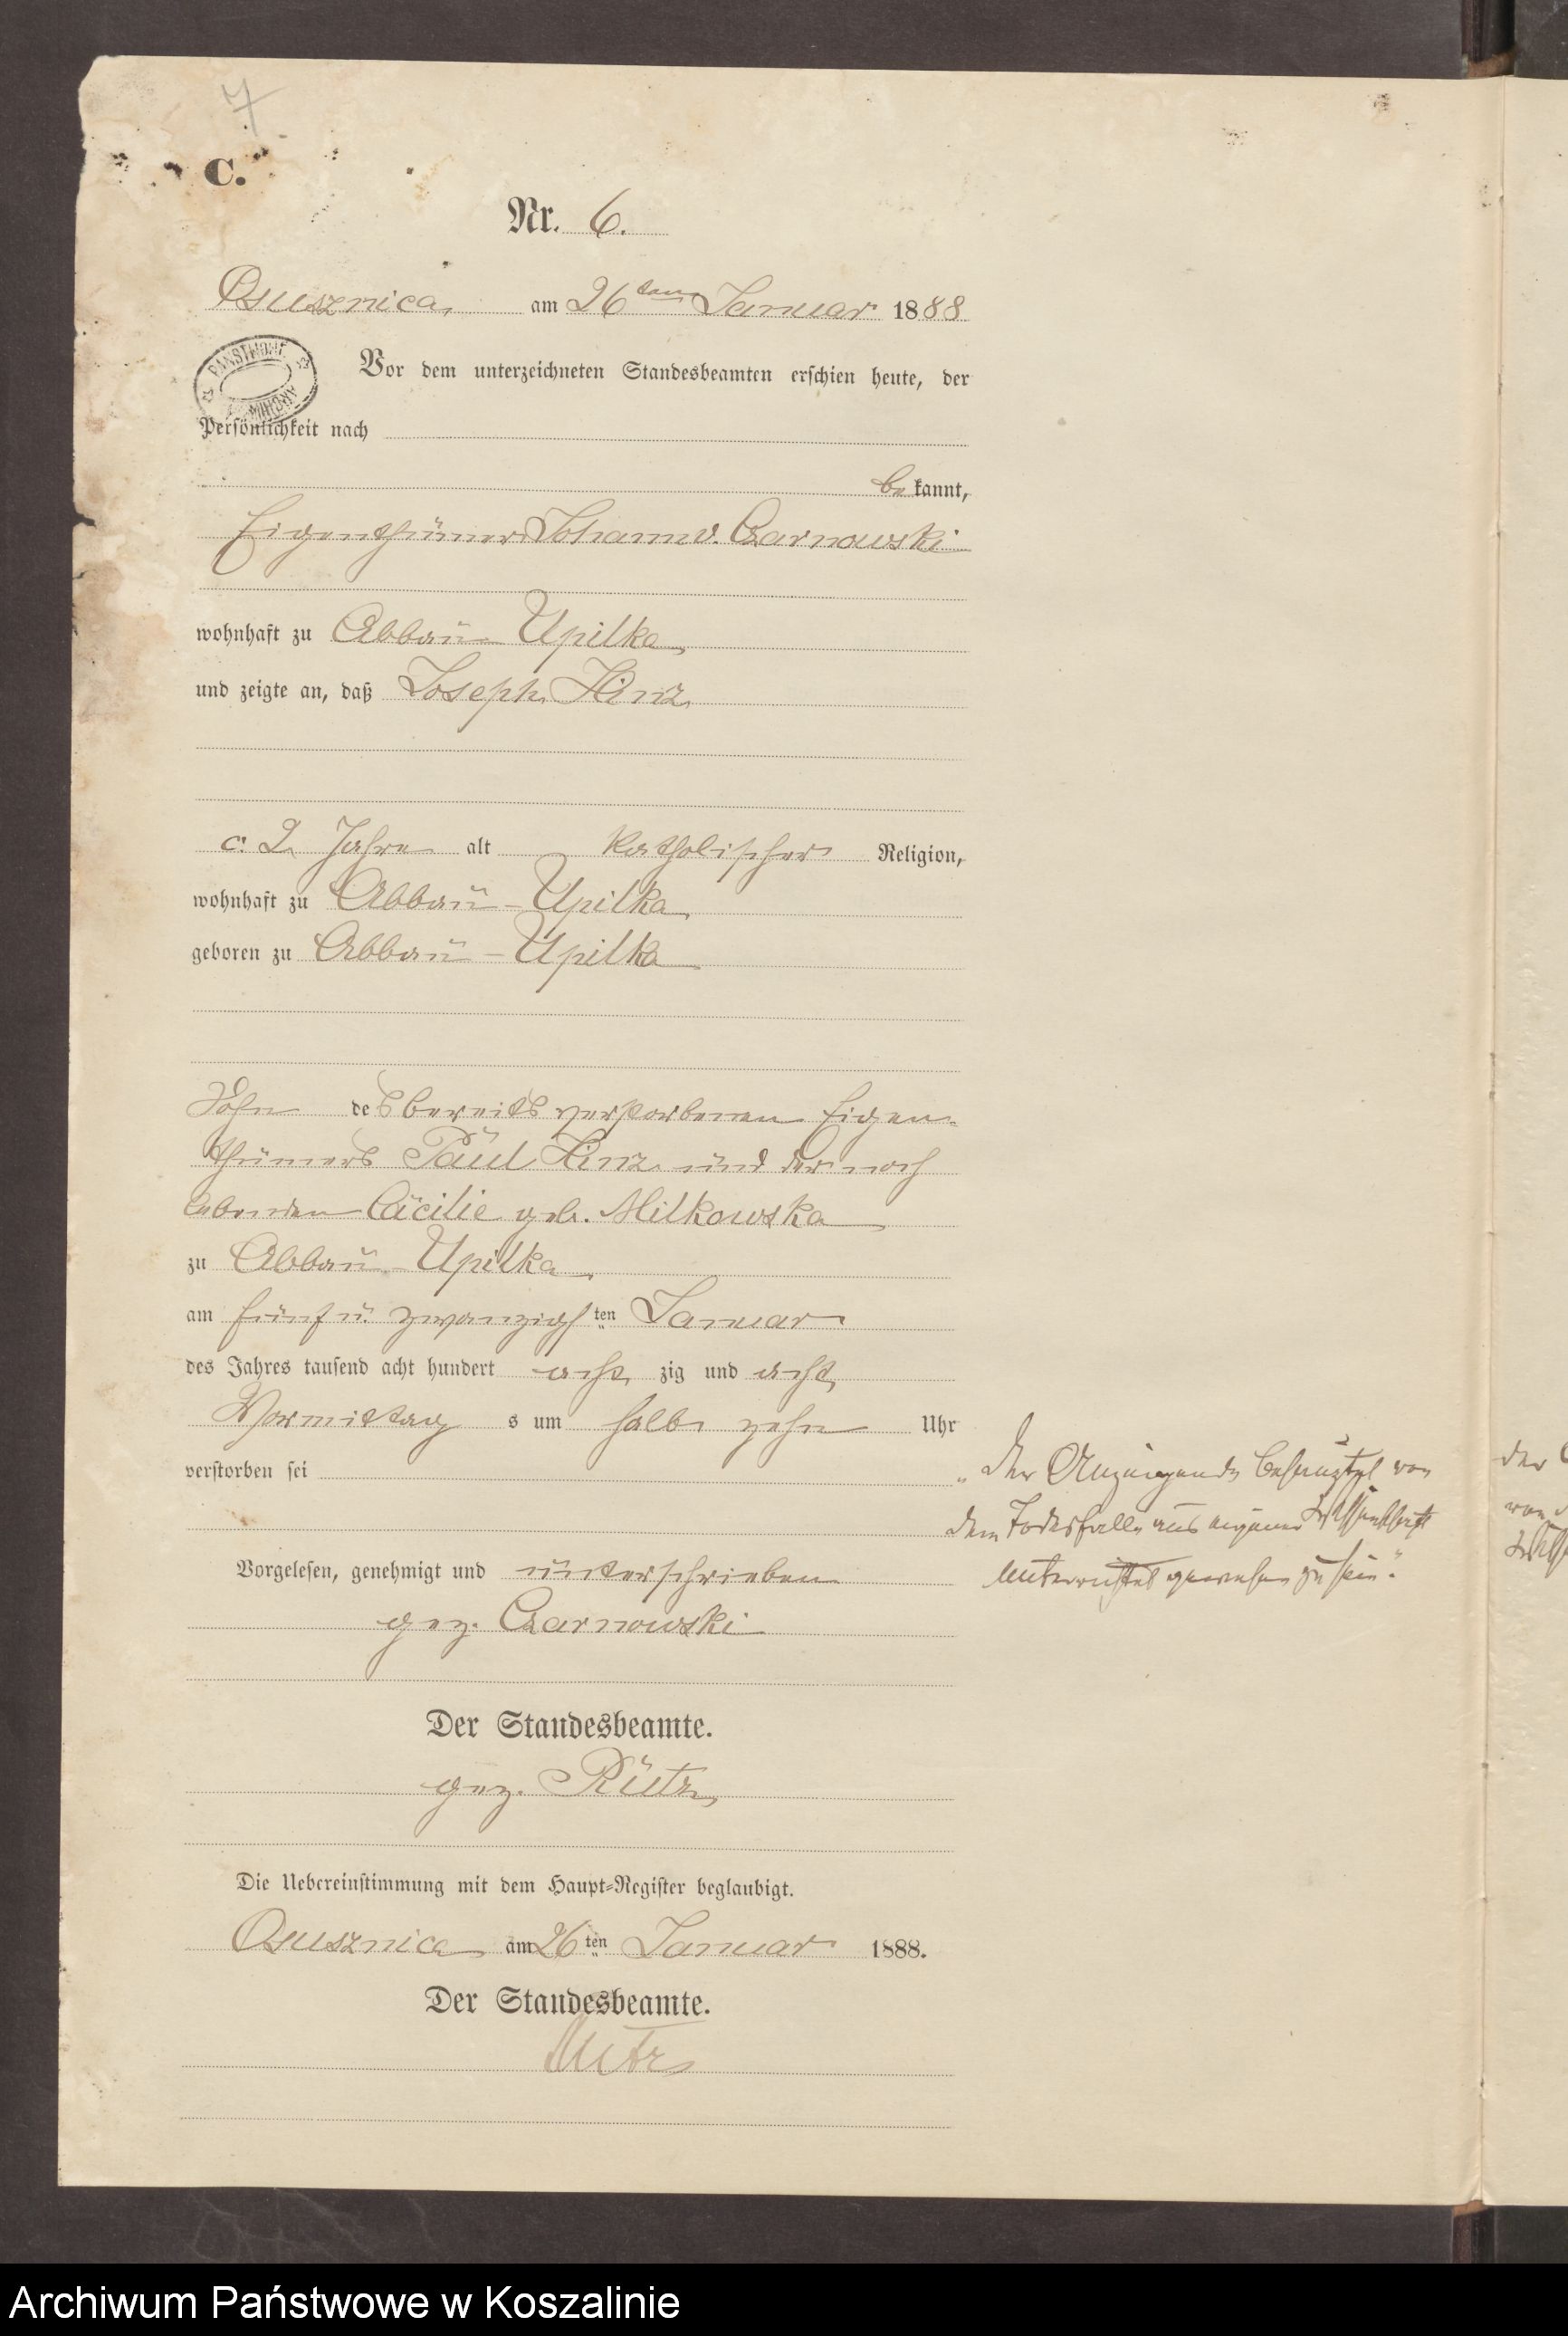 7
C.
Nr. 6.
Osusznica, am 26ten Januar 1888
PANSTWOWE ARCHIWUM
Vor dem unterzeichneten Standesbeamten erschien heute, der
Persönlichkeit nach
bekannt,
Eigenthümer Johann v. Czarnowski
wohnhaft zu Abbau Upilka,
und zeigte an, daß Joseph Hinz,
c. 2 Jahre alt katholischer Religion,
wohnhaft zu Abbau - Upilka,
geboren zu Abbau - Upilka
Sohn des bereits verstorbenen Eigen-
thümers Paul Hinz und der noch
lebenden Cäcilie geb. Milkowska
zu Abbau - Upilka,
am fünf u. zwanzigsten Januar
des Jahres tausend acht hundert acht zig und acht,
Vormittag s um halb zehn Uhr
verstorben sei
„Der Anzeigende bescheinigt von
dem Todesfalle aus eigener Wissenschaft
unterrichtet gewesen zu sein."
Vorgelesen, genehmigt und unterschrieben
gez. Czarnowski
Der Standesbeamte.
gez. Rütz,
Die Uebereinstimmung mit dem Haupt-Register beglaubigt.
Osusznica am 26ten Januar 1888.
Der Standesbeamte.
Rütz
Archiwum Państwowe w Koszalinie